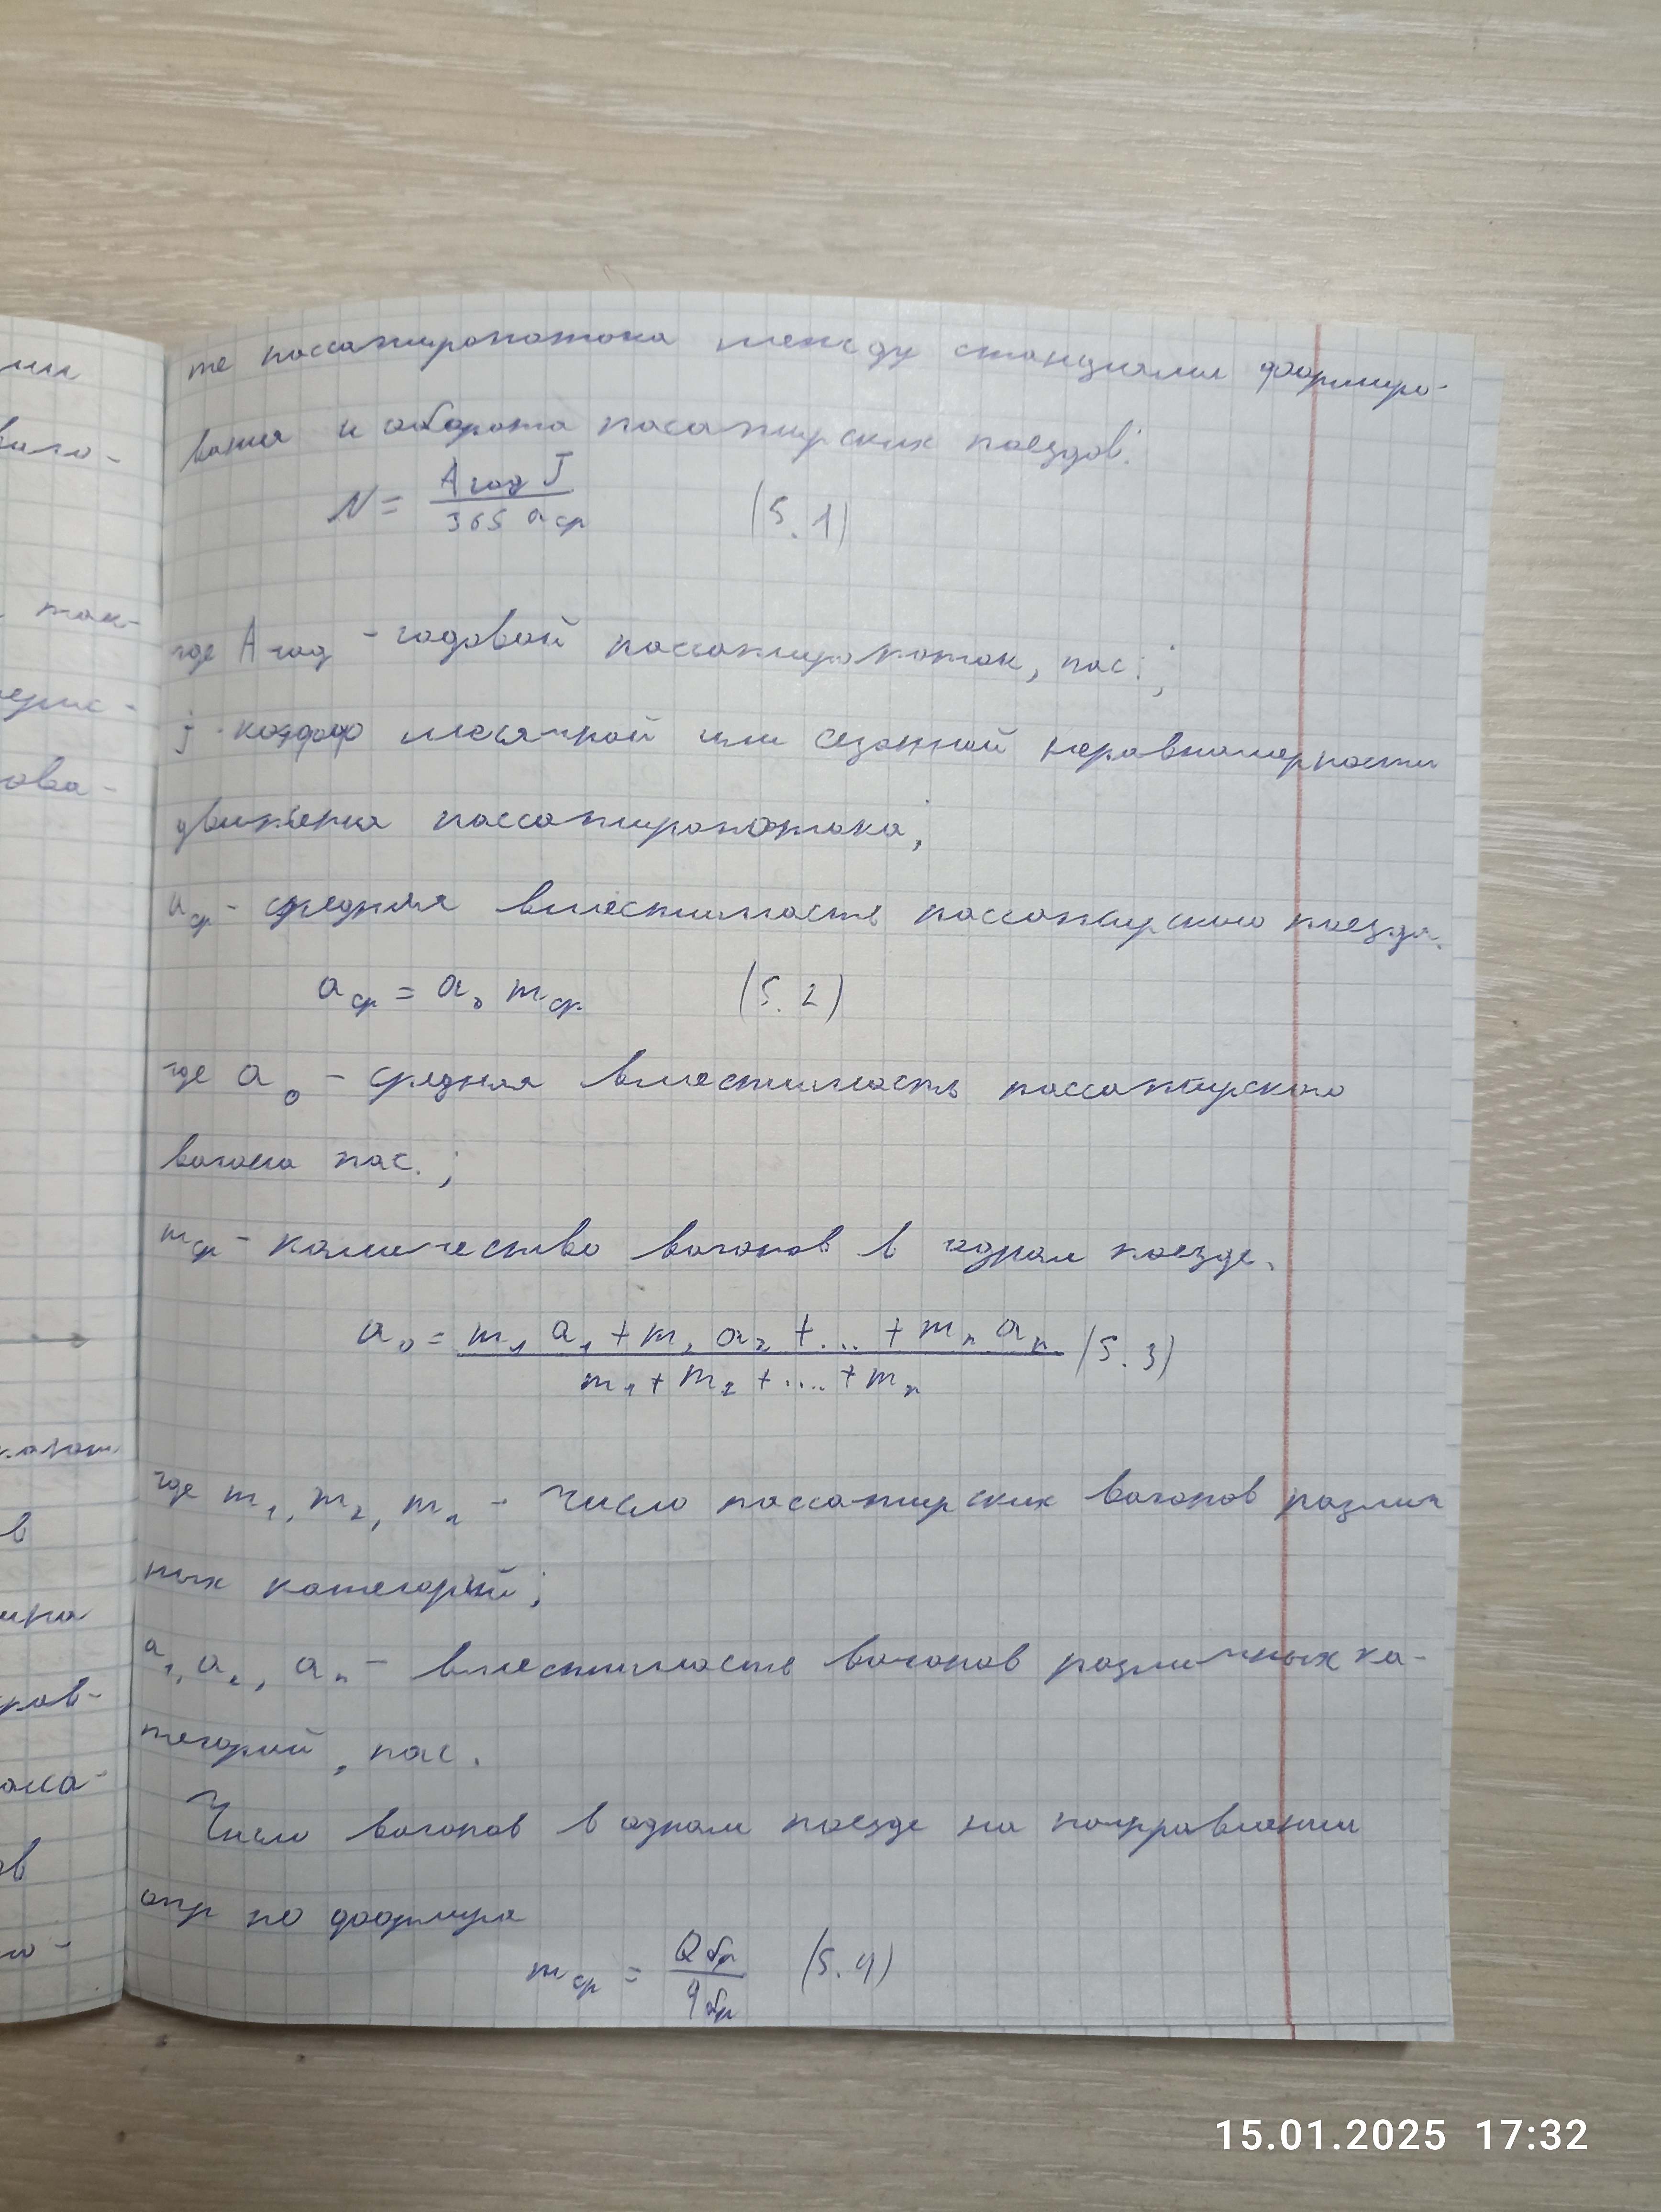 те пассажиропотока между станциями формиро-
вания и оборота пасажирских поездов:
N = Aгод J / 365 aср (5.1)
где Aгод - годовой пассажиропоток, пас.;
j - коэфф месячной или сезонной неравномерности
движения пассажиропотока;
aср - средняя вместимость пассажирского поезда.
aср = a₀ mср (5.2)
где a₀ - средняя вместимость пассажирского
вагона пас.;
mср - количество вагонов в одном поезде.
a₀ = m₁ a₁ + m₂ a₂ + ... + mₙ aₙ / m₁ + m₂ + .... + mₙ (5.3)
где m₁, m₂, mₙ - Число пассажирских вагонов различ
ных категорий;
a₁, a₂, aₙ - вместимость вагонов различных ка-
тегорий, пас.
Число вагонов в одном поезде на направлении
опр по формуле
mср = Qбр / qбр (5.4)
15.01.2025 17:32